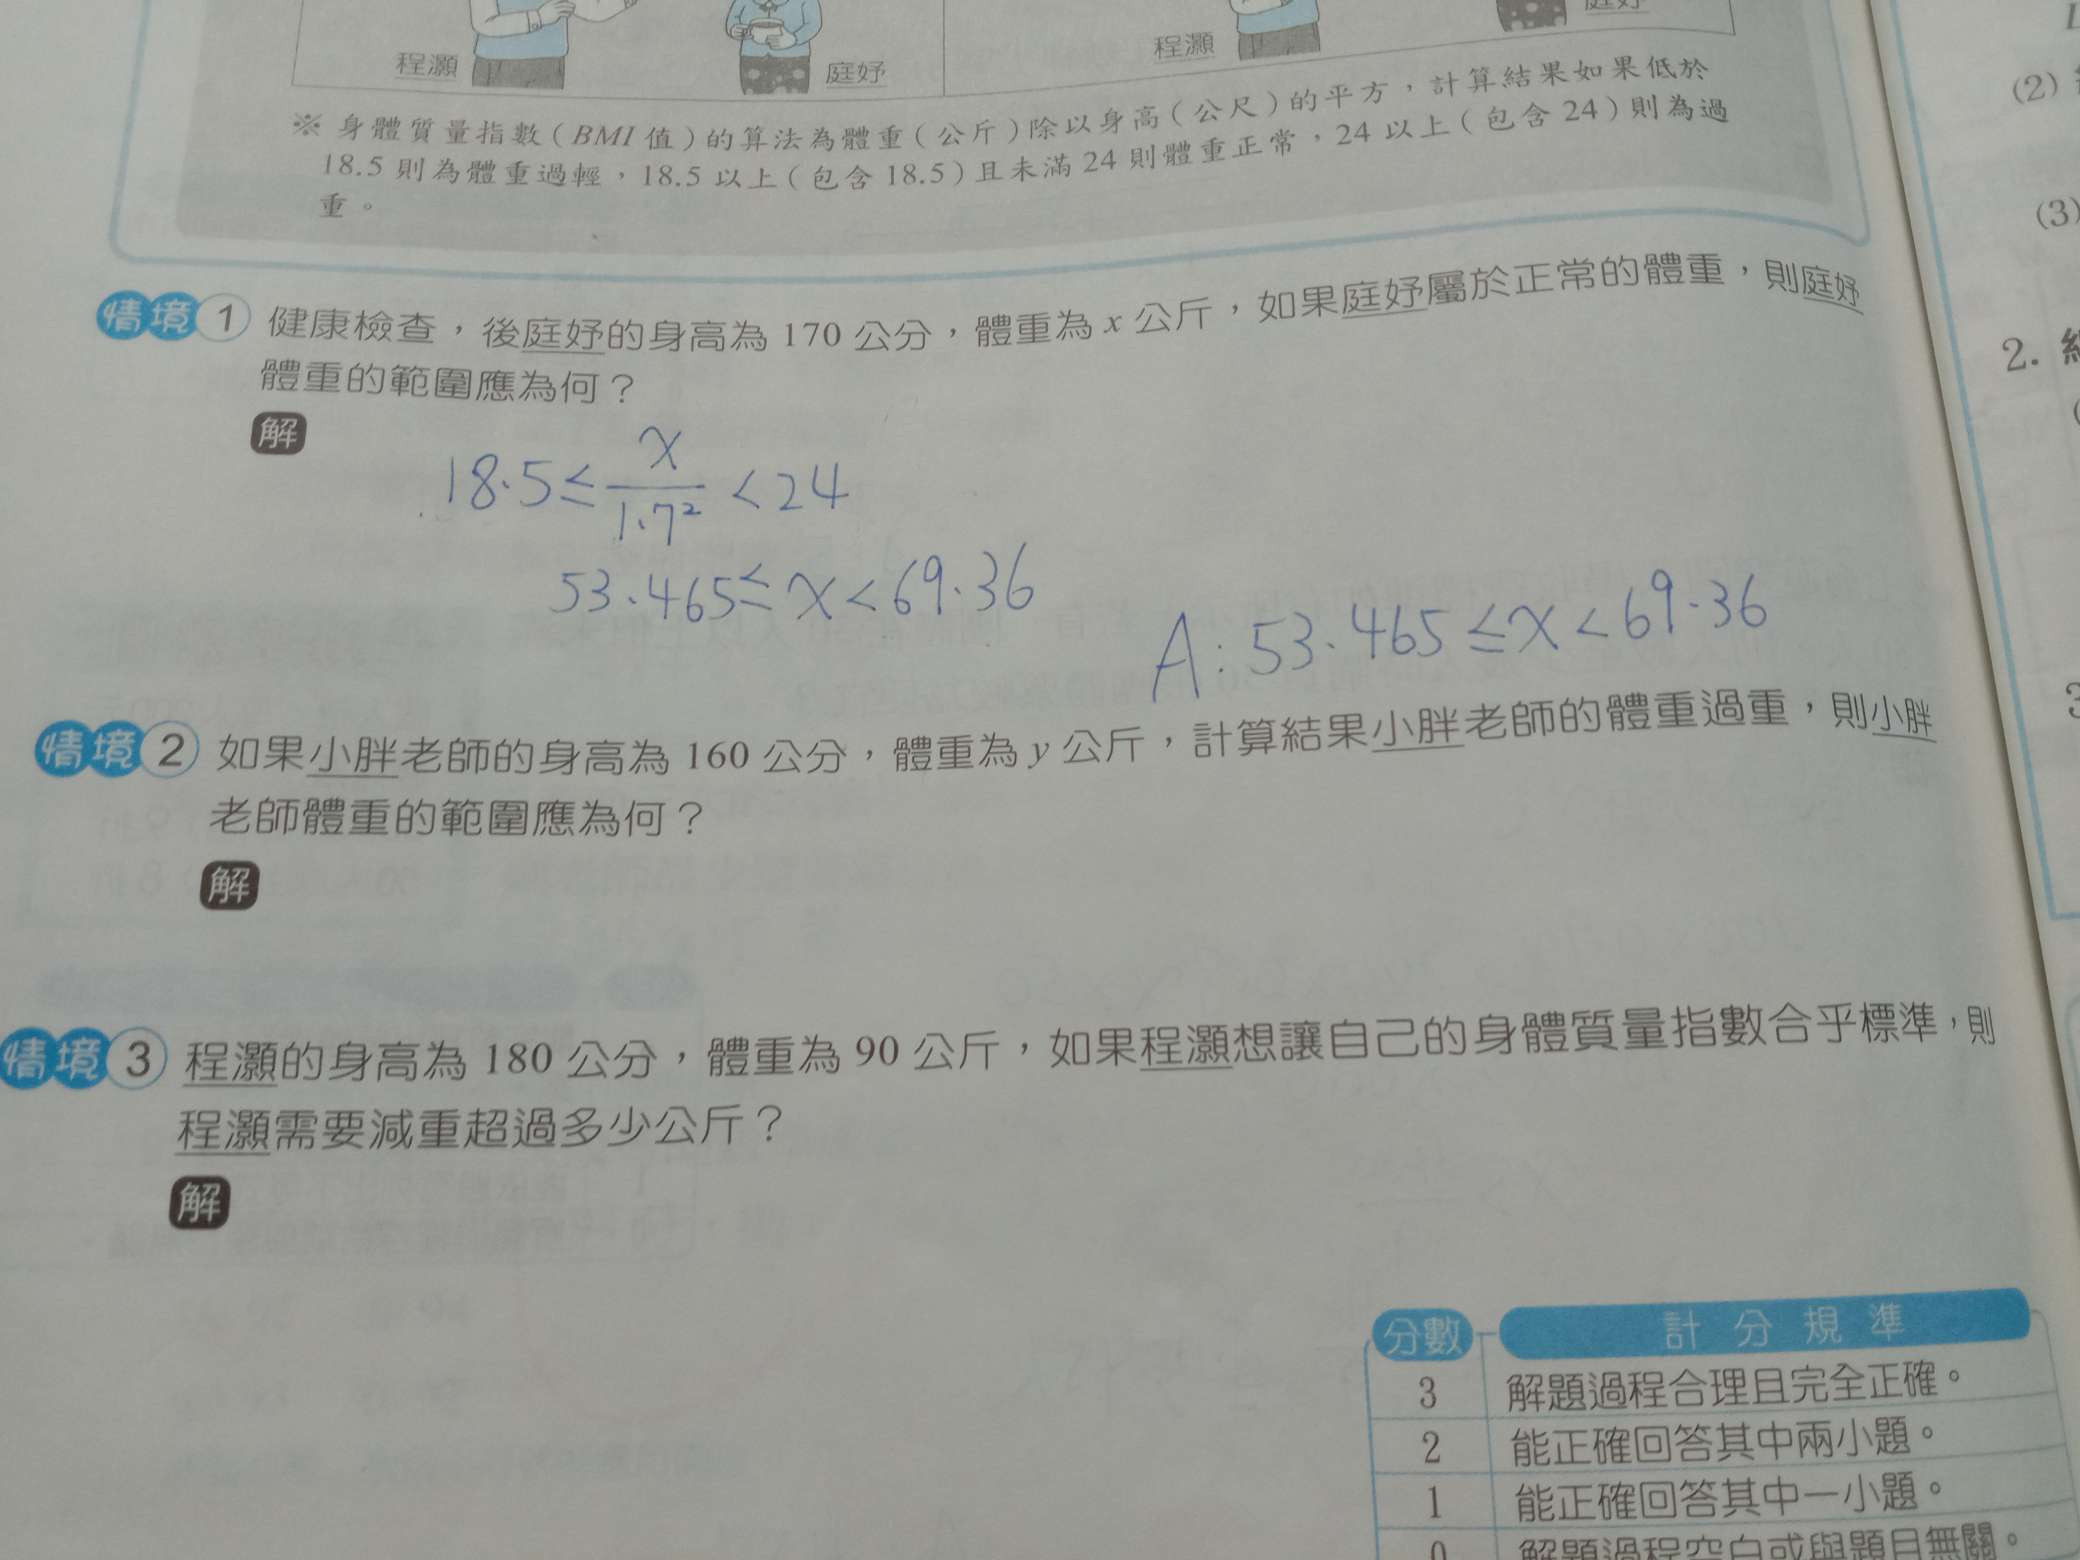 程灝
庭妤
程灝
※ 身體質量指數（BMI 值）的算法為體重（公斤）除以身高（公尺）的平方，計算結果如果低於
18.5 則為體重過輕，18.5 以上（包含 18.5）且未滿 24 則體重正常，24 以上（包含 24）則為過
重。
(2)
(3)
2.
情境 1 健康檢查，後庭妤的身高為 170 公分，體重為 x 公斤，如果庭妤屬於正常的體重，則庭妤
體重的範圍應為何？
解
18.5 ≤ x/1.7² < 24
53.465 ≤ x < 69.36
A: 53.465 ≤ x < 69.36
情境 2 如果小胖老師的身高為 160 公分，體重為 y 公斤，計算結果小胖老師的體重過重，則小胖
老師體重的範圍應為何？
解
情境 3 程灝的身高為 180 公分，體重為 90 公斤，如果程灝想讓自己的身體質量指數合乎標準，則
程灝需要減重超過多少公斤？
解
分數 計分規準
3 解題過程合理且完全正確。
2 能正確回答其中兩小題。
1 能正確回答其中一小題。
0 解題過程空白或與題目無關。